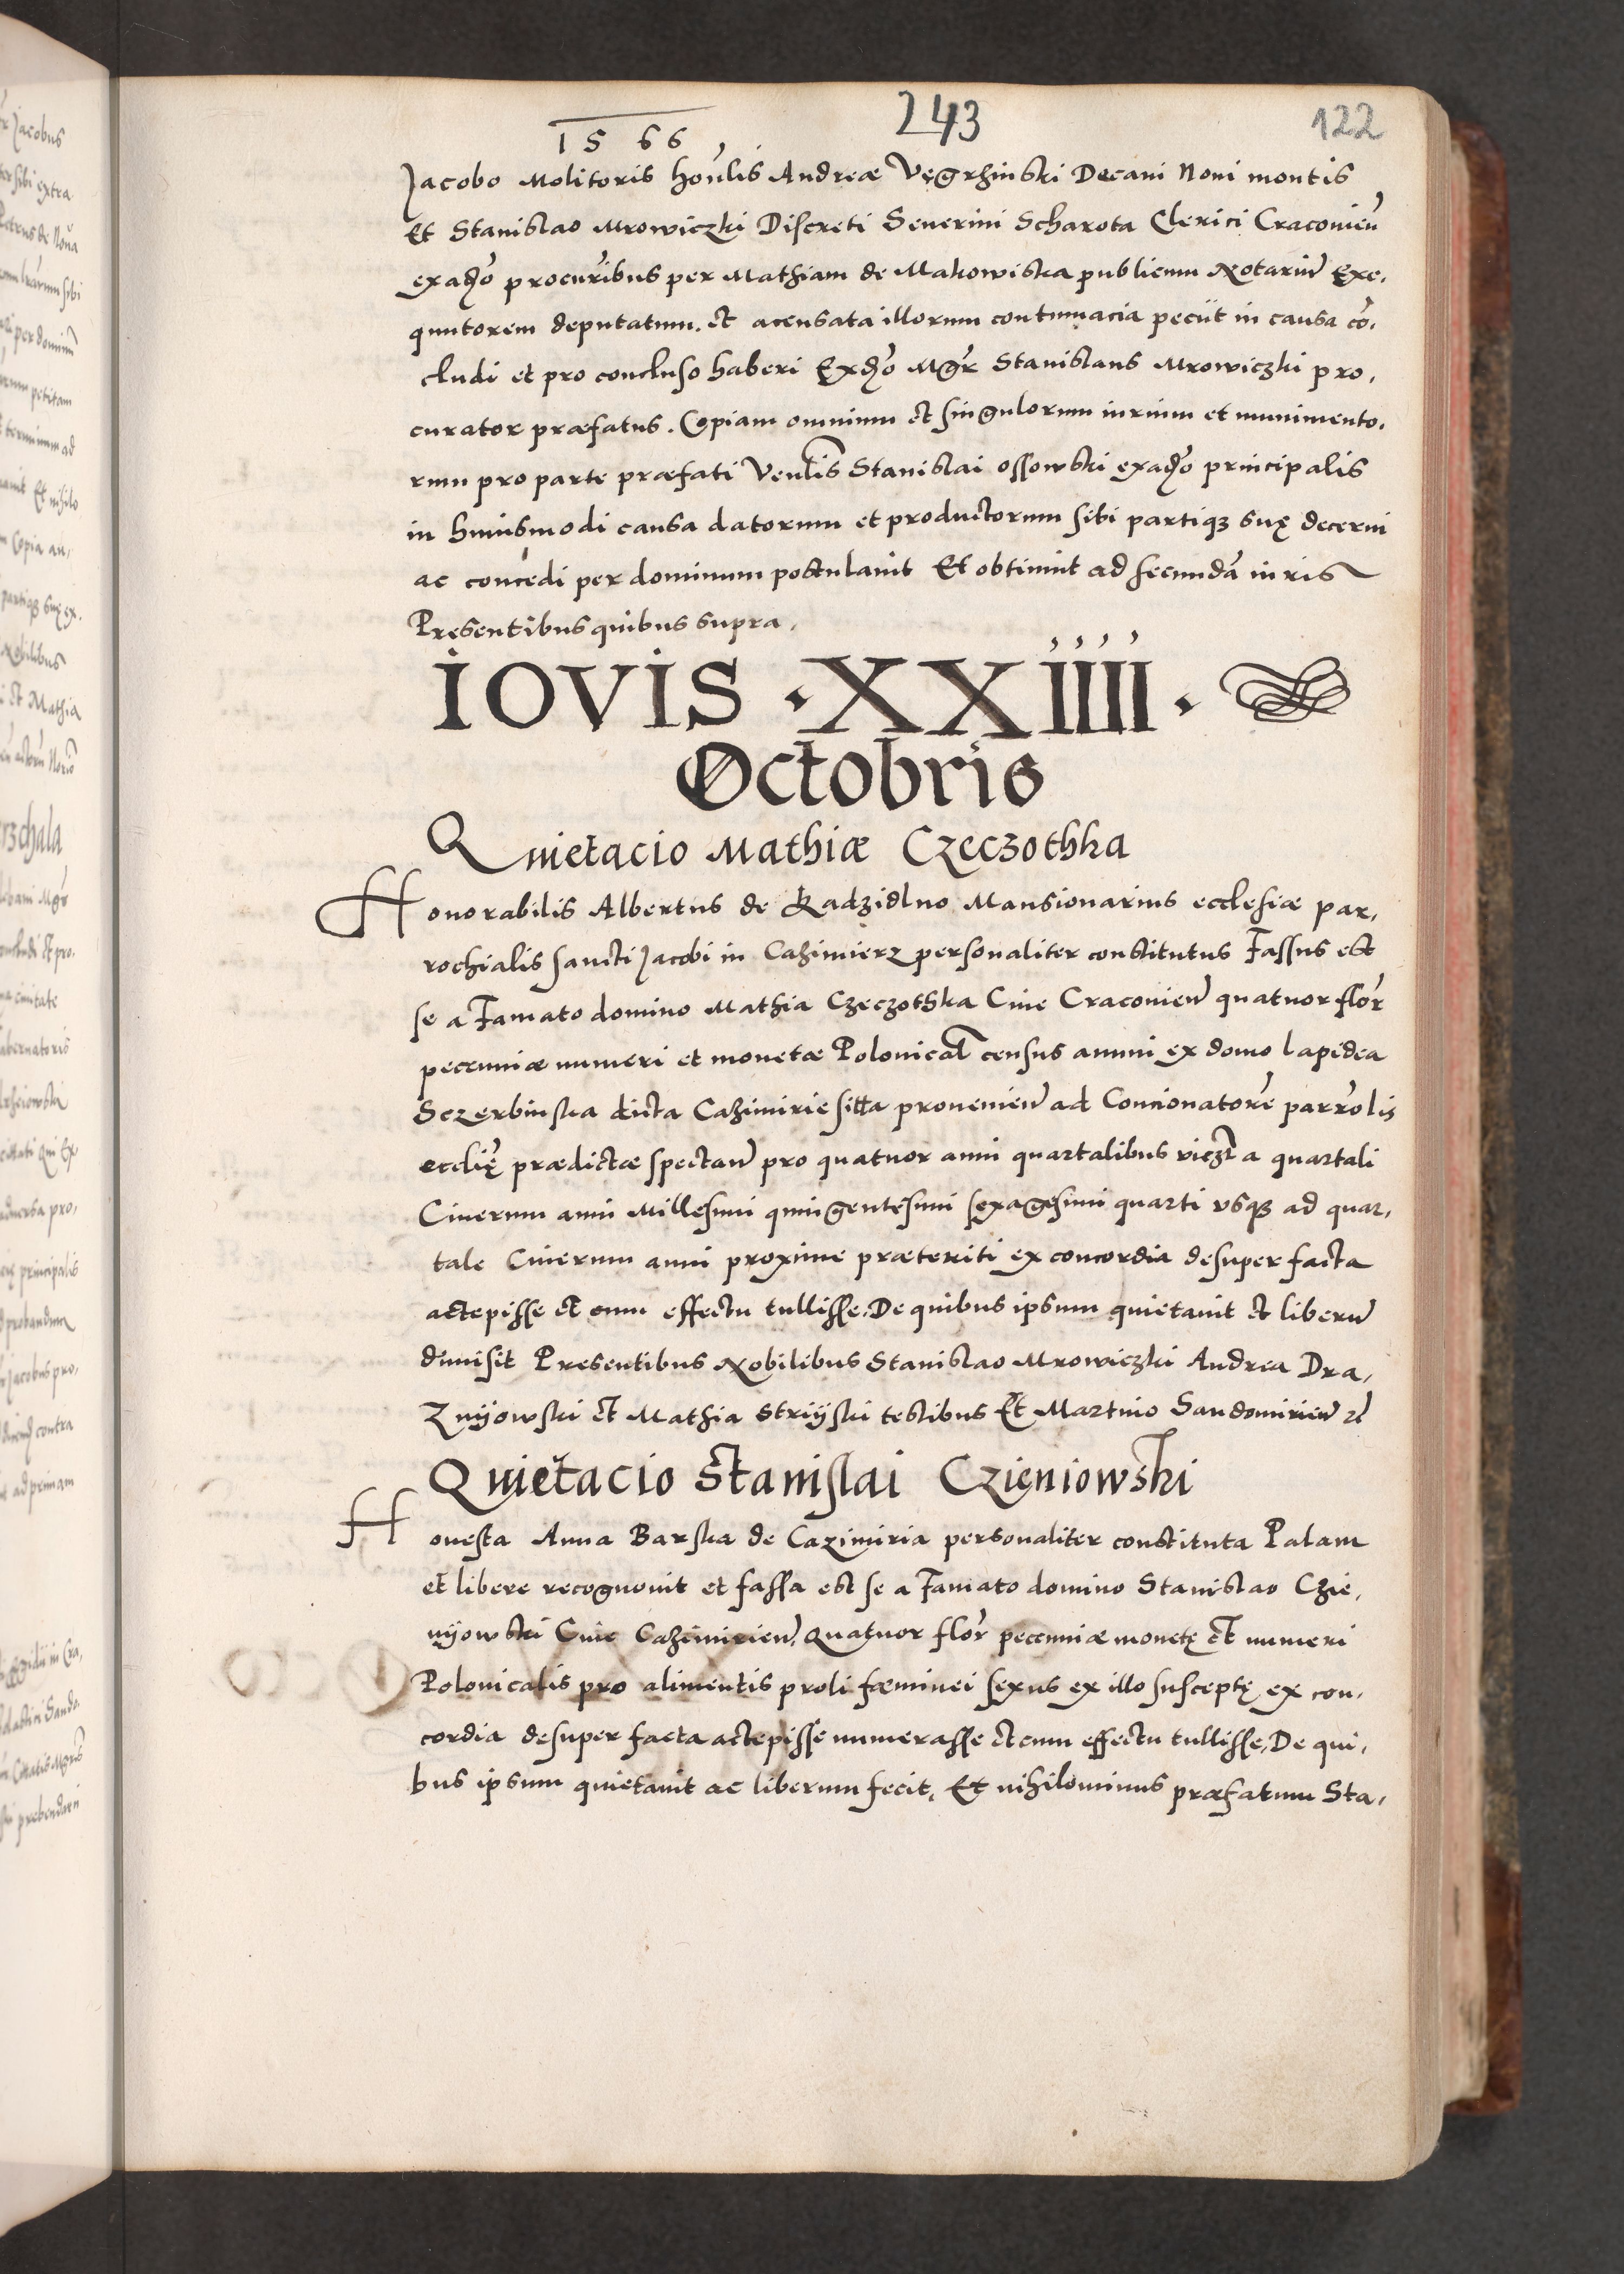 1566
243
122
Jacobo Molitoris hon̄lis Andreæ Vęgrzinski Decani Noui montis
Et Stanislao Mrowiczki Discreti Seuerini Scharota Clerici Craconien̄
exadṽo procur̄ibus per Mathiam de Makowiska publicum Notariū Exe,
quutorem deputatum. et acensata illorum contumacia peciit in causa cō,
cludi et pro concluso haberi Exadṽo Mḡr Stanislaus Mrowiczki pro,
curator præfatus. Copiam omnium et singulorum iurium et munimento,
rum pro parte præfati Ven̄lis Stanislai Ossowski exadṽo principalis
in huiusmodi causa datorum et productorum sibi partiqȝ suę decerni
ac concedi per dominum postulauit Et obtinuit ad secundā iuris
Presentibus quibus supra,
IOVIS · XXIIII ·
Octobris
Quietacio Mathiæ Czeczothka
Honorabilis Albertus de Kadzidlno Mansionarius ecclesiæ par,
rochialis sancti Jacobi in Cazimierz personaliter constitutus Fassus est
se a Famato domino Mathia Czeczothka Ciue Cracouien̄ quatuor flor̄
pecuniæ numeri et monetæ Polonical̄ census annui ex domo lapidea
Sczerbinska dicta Cazimirie sitta prouenien̄ ad Concionatorē parrōlis
ecclię̄ prædictæ spectan̄ pro quatuor anni quartalibus viczt̄ a quartali
Cinerum anni Millesimi quingentesimi sexagesimi quarti vsqȝ ad quar,
tale Cinerum anni proxime præteriti ex concordia desuper facta
accepisse et cum effectu tullisse, De quibus ipsum quietauit et liberū
dimisit Presentibus Nobilibus Stanislao Mrowiczki Andrea Dra,
Znijowski et Mathia Striyski testibus Et Martino Sandomirien̄ zc̄
Quietacio Stanislai Czieniowski
Honesta Anna Barska de Cazimiria personaliter constituta Palam
et libere recognouit et fassa est se a Famato domino Stanislao Czie,
nijowski Ciue Cazimirien̄, Quatuor flor̄ pecuniæ monetę et numeri
Polonicalis pro alimentis proli fæminei sexus ex illo susceptę ex con,
cordia desuper facta accepisse numerasse et cum effectu tullisse, De qui,
bus ipsum quietauit ac liberum fecit, Et nihilominus præfatum Sta,